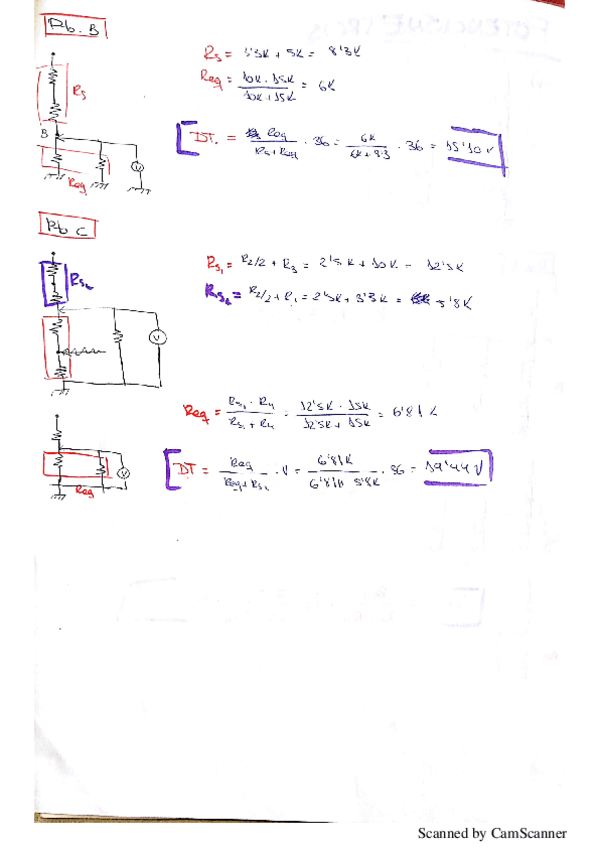 Pto. B
Rs = 3'3K + 5K = 8'3K
Req = 10K · 15K / 10K + 15K = 6K
Rs
B
V
Req
DT. = Req / Rs + Req · 36 = 6K / 6K + 8'3 · 36 = 15'10 V
Pto C
Rs1 = R2/2 + R3 = 2'5K + 10K = 12'5K
Rs2
Rs2 = R2/2 + R1 = 2'5K + 3'3K = 5'8K
V
Req = Rs1 · R4 / Rs1 + R4 = 12'5K · 15K / 12'5K + 15K = 6'81K
V
Req
DT = Req / Req + Rs2 · V = 6'81K / 6'81K 5'8K · 36 = 19'44 V
Scanned by CamScanner